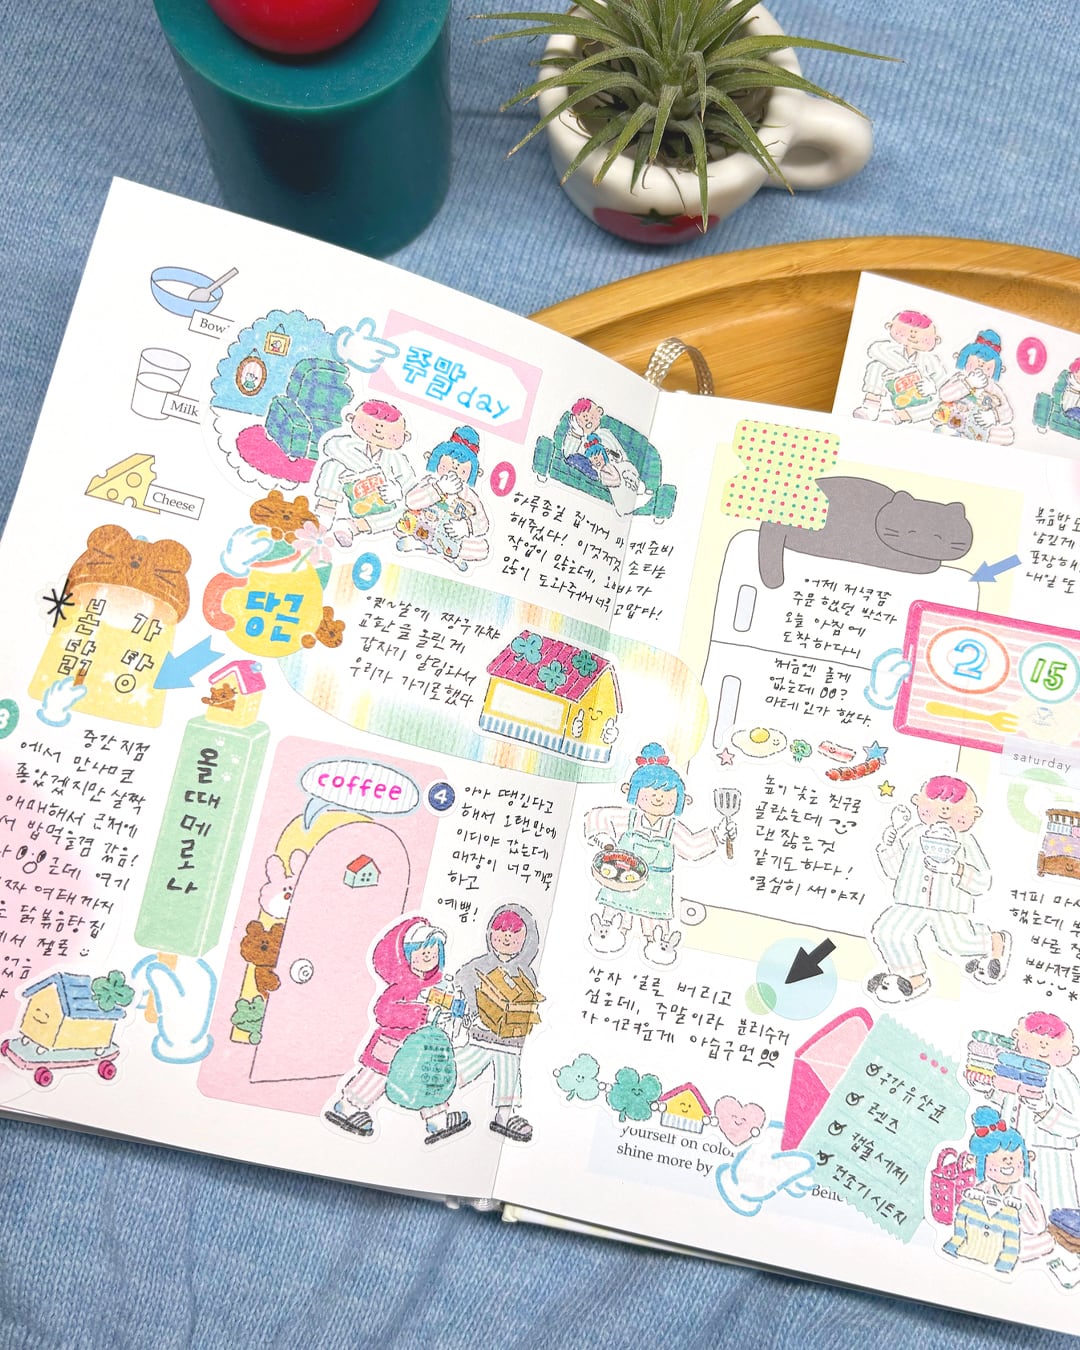 Bowl
Milk
Cheese
주말 day
1
하루종일 집에서 마켓준비
해줬다! 이것저것 손타는
작업이 많은데, 오빠가
많이 도와줘서 너무 고맙다!
당근
2
옛날에 짱우가챠
교환글 올린게
갑자기 알림와서
우리가 가기로했다
분가
당탕
3
중간지점
에서 만나면
좋았겠지만 살짝
애매해서 근처에
서 밥먹을겸 갔음!
근데 여기
여태까지
닭볶음탕집
에서 젤로
올때메로나
coffee
4
아아 땡긴다고
해서 오랜만에
이디야 갔는데
매장이 너무
하고
예쁨!
어제 저녁쯤
주문했던 박스가
오늘 아침에
도착하다니
처음엔 올게
없는데 ?
마테인가 했다.
높이 낮은 친구로
골랐는데
괜찮은것
같기도 하다!
열심히 써야지
상자 얼른 버리고
싶은데, 주말이라 분리수거
가 어려운게 아쉽구먼
yourself on
shine more by
구강유산균
렌즈
캡슐세제
건조기시트지
1
볶음밥
남길게
포장해
내일 또
2 15
saturday
커피 마시
했는데
바로
빠져들